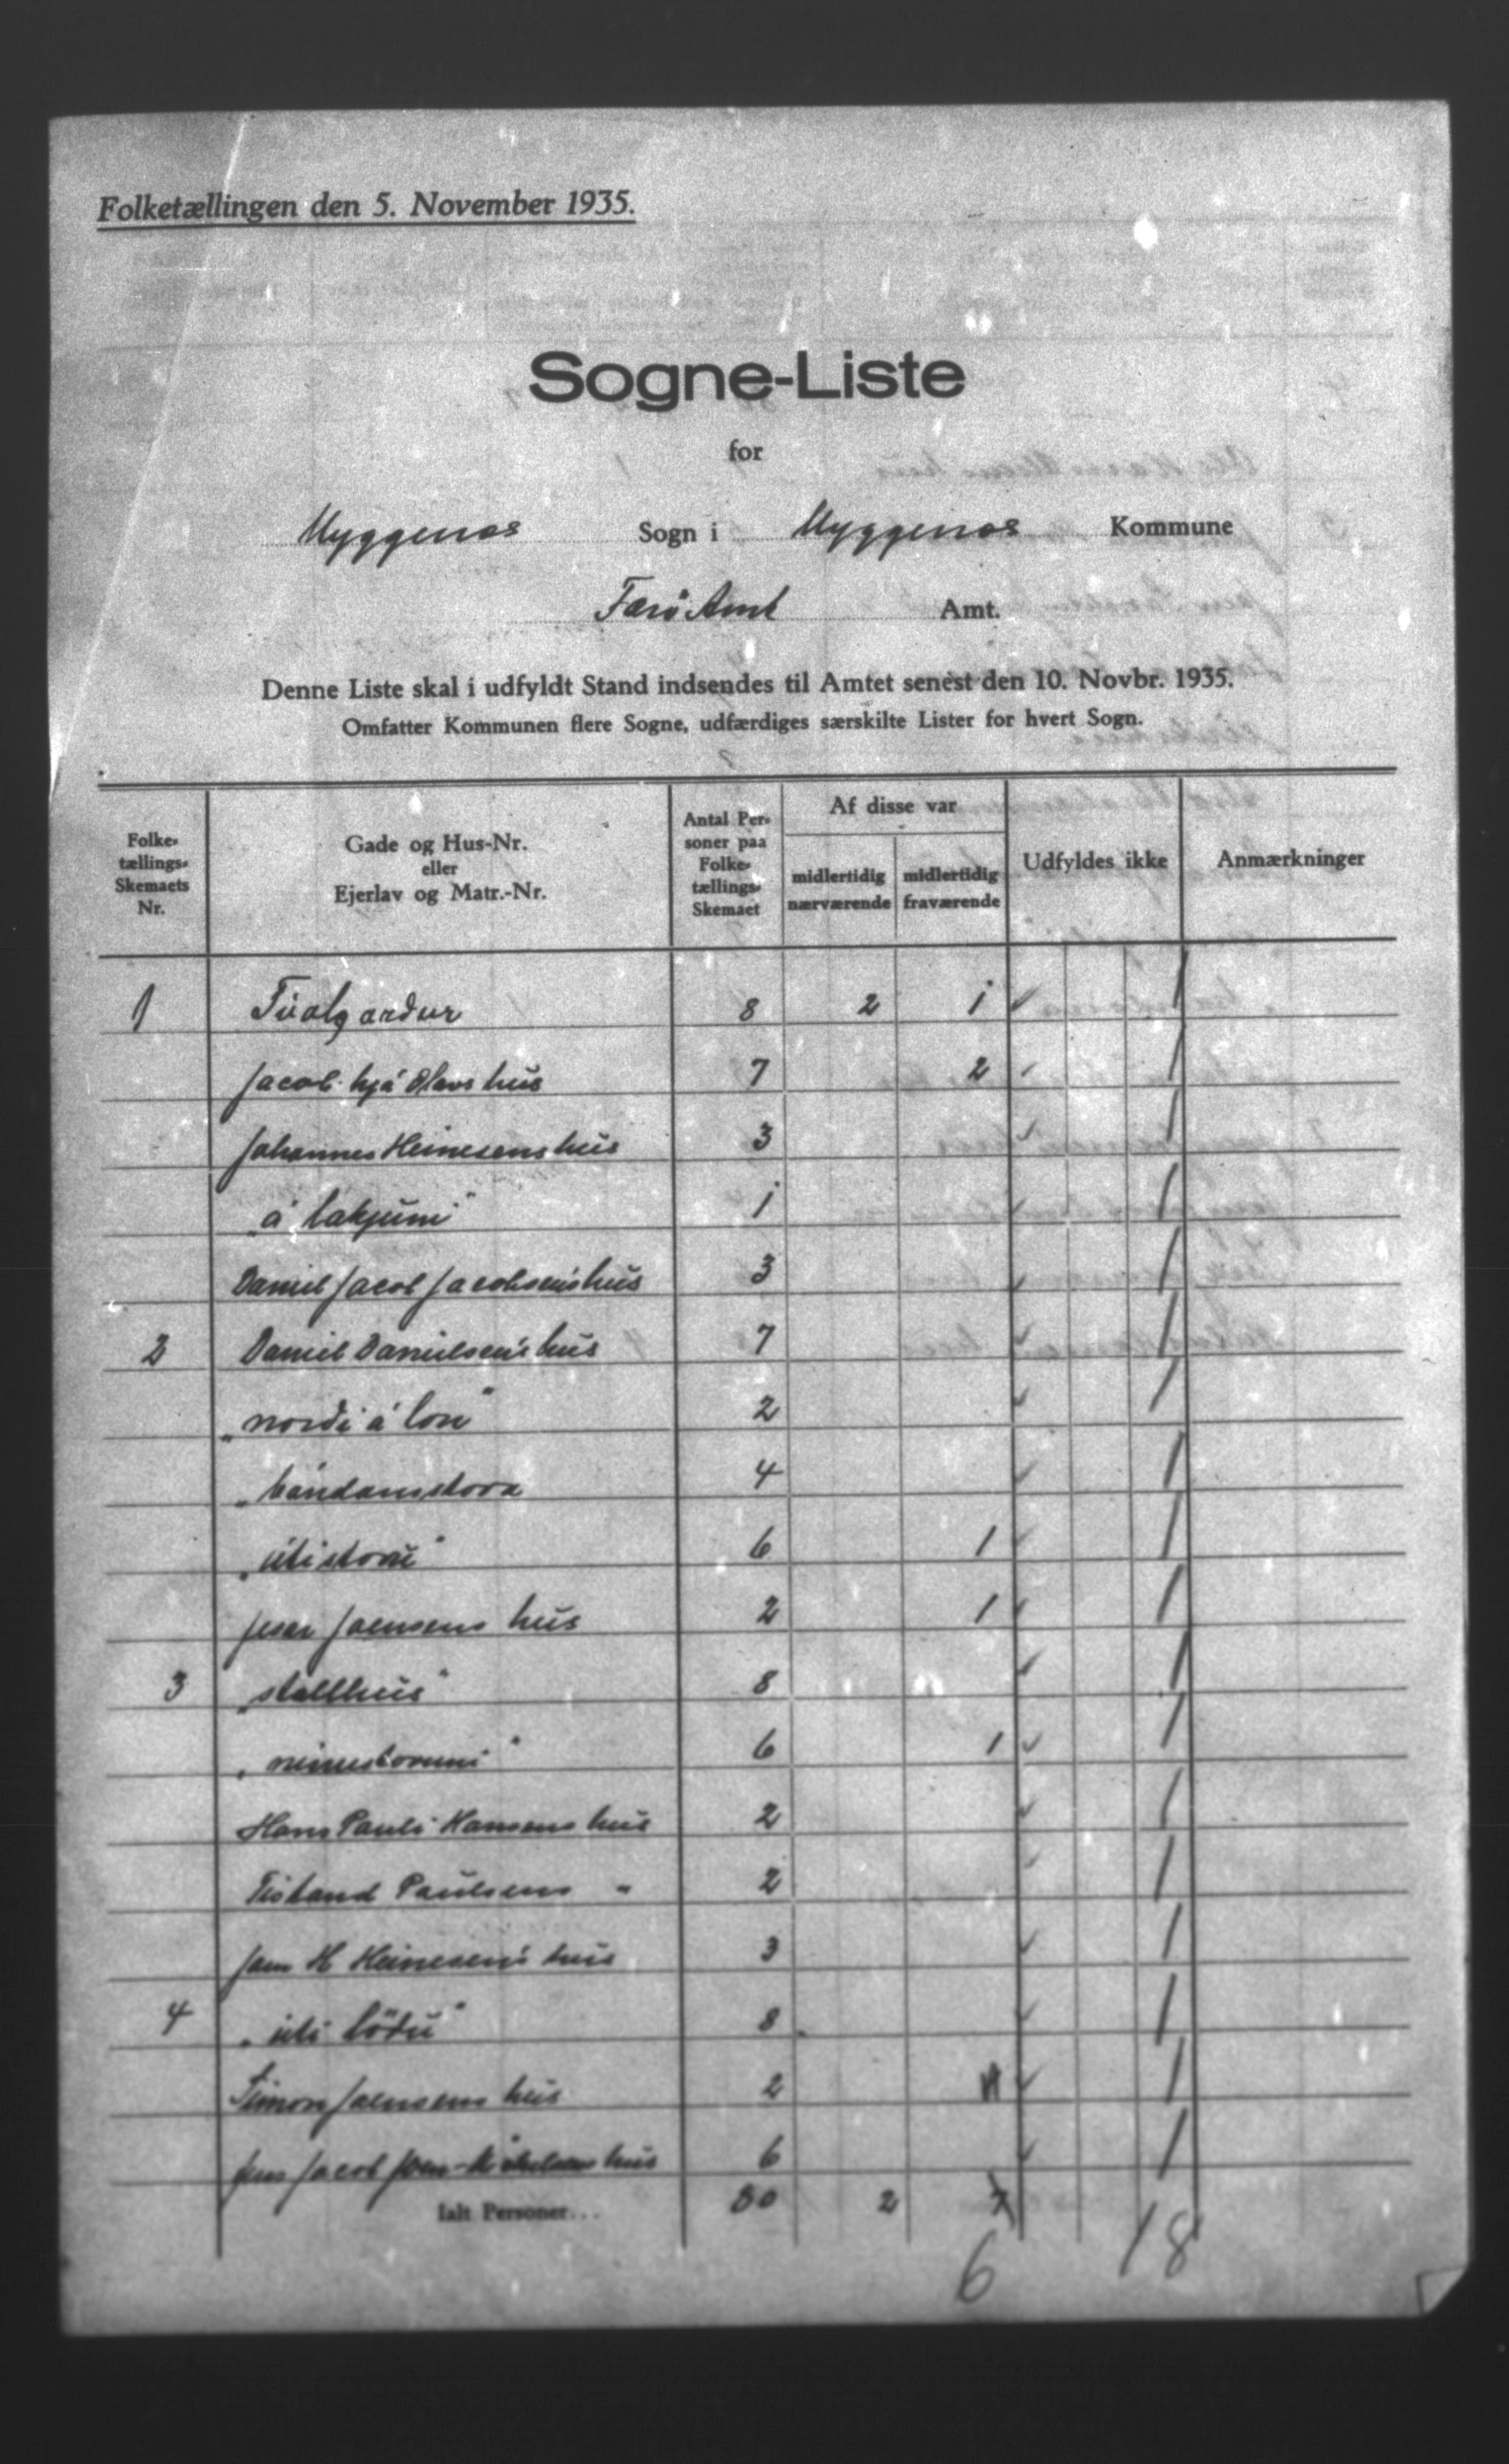 Folketællingen den 5. November 1935.
Sogne-Liste
for
Myggenæs Sogn i Myggenæs Kommune
Færö Amt Amt.
Denne Liste skal i udfyldt Stand indsendes til Amtet senest den 10. Novbr. 1935.
Omfatter Kommunen flere Sogne, udfærdiges særskilte Lister for hvert Sogn.
Folketællings-Skemaets Nr. Gade og Hus-Nr. eller Ejerlav og Matr.-Nr. Antal Personer paa Folketællings-Skemaet Af disse var midlertidig nærværende midlertidig fraværende Udfyldes ikke Anmærkninger
1 8 2 1 /
Jacob hjá Olavs hús 7 2 /
Johannes Heinesens hús 3 /
„á lakjuni" 1 /
Daniel Jacob Jacobsens hús 3 /
2 Daniel Danielsens hús 7 /
„norði á lon" 2 /
„bóndanstova 4 /
„útistovu" 6 1 /
Joensens hús 2 1 /
3 „stallhús" 8 /
6 1 /
Hans Pauli Hansens hús 2 /
Paulsens " 2 /
H Heinesens hús 3 /
4 „úti löðu" 8 /
Simon Joensens hús 2 /
Jens Jacob hús 6 /
Ialt Personer... 80 2 7
6 18